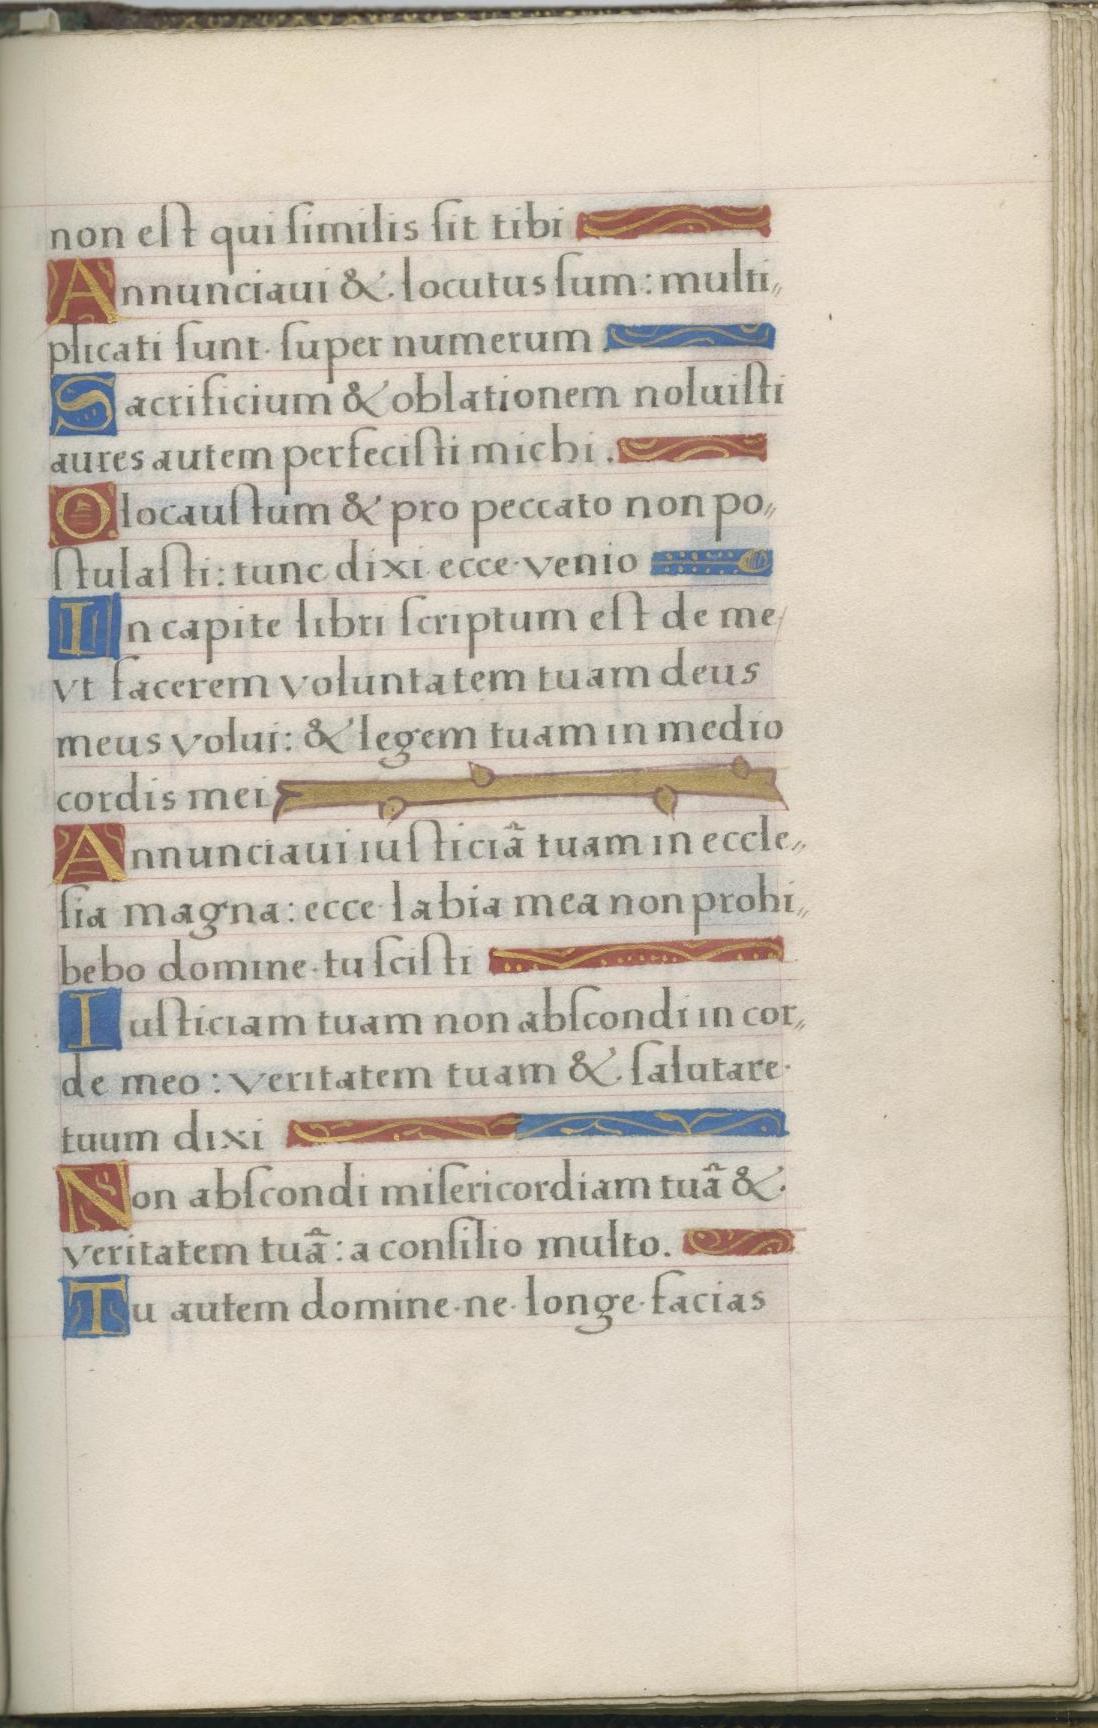 non eſt qui ſimilis ſit tibi
Annunciaui &. locutus ſum: multi„
plicati ſunt· ſuper numerum .
Sacrificium & oblationem noluiſti
aures autem perfeciſti michi .
Olocauſtum & pro peccato non po„
ſtulaſti: tunc dixi ecce· venio
In capite libri ſcriptum eſt de me/
vt facerem voluntatem tuam deus
meus volui: & legem tuam in medio
cordis mei
Annunciaui iuſticiã tuam in eccle„
ſia magna: ecce· labia mea non prohi„
bebo domine· tu ſciſti
Iuſticiam tuam non abſcondi in cor„
de meo: veritatem tuam &. ſalutare·
tuum dixi
Non abſcondi miſericordiam tuã &.
veritatem tuã: a conſilio multo.
Tu autem domine·ne· longe·facias